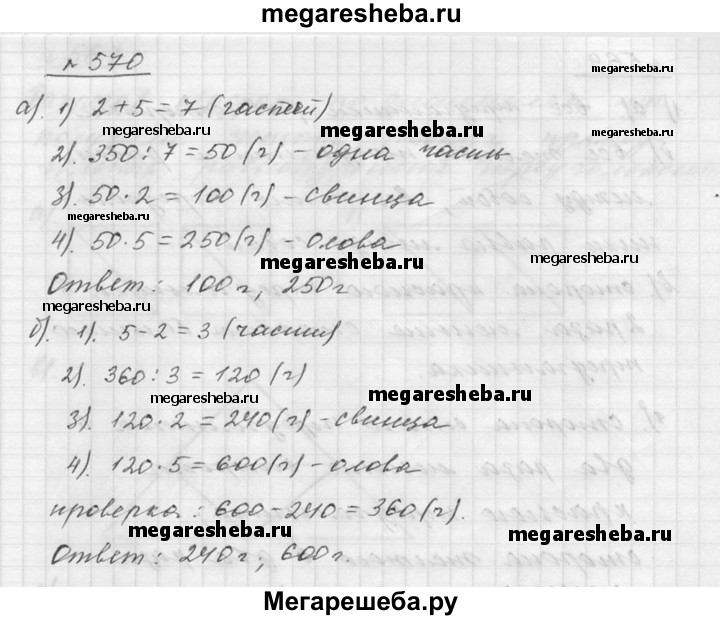 megaresheba.ru
№ 570
megaresheba.ru
а). 1) 2+5=7 (частей)
megaresheba.ru megaresheba.ru
2). 350:7=50 (г) - одна часть
3). 50·2=100 (г) - свинца
megaresheba.ru
4). 50·5=250 (г) - олова
megaresheba.ru
Ответ: 100г, 250г
megaresheba.ru
б). 1). 5-2=3 (части)
2). 360:3=120 (г)
megaresheba.ru megaresheba.ru
3). 120·2=240 (г) - свинца
4). 120·5=600 (г) - олова
проверка: 600-240=360 (г).
megaresheba.ru megaresheba.ru
Ответ: 240г; 600г.
Мегарешеба.ру